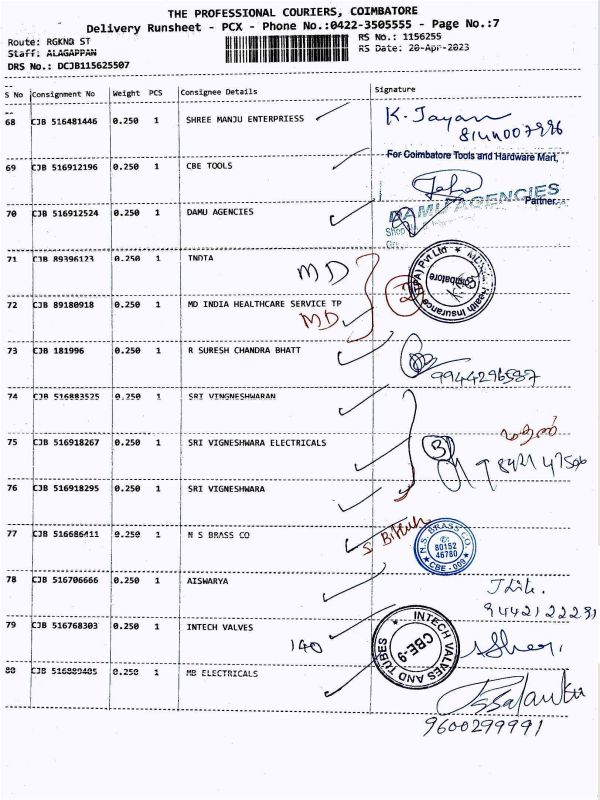 THE PROFESSIONAL COURIERS, COIMBATORE
Delivery Runsheet - PCX - Phone No.:0422-3505555 - Page No.:7
Route: RGKNG ST
RS No.: 1156255
Staff: ALAGAPPAN
RS Date: 20-Apr-2023
DRS No.: DCJB115625507
S No Consignment No Weight PCS Consignee Details Signature
68 CJB 516481446 0.250 1 SHREE MANJU ENTERPRIESS K. Jayan
For Coimbatore Tools and Hardware Mart,
69 CJB 516912196 0.250 1 CBE TOOLS
Partner.
70 CJB 516912524 0.250 1 DAMU AGENCIES DAMU AGENCIES
71 CJB 89396123 0.250 1 MD
MD India Health Insurance (TPA) Pvt Ltd
Coimbatore
72 CJB 89180918 0.250 1 MD INDIA HEALTHCARE SERVICE TP
MD 2
73 CJB 181996 0.250 1 R SURESH CHANDRA BHATT
9944296587
74 CJB 516883525 0.250 1 SRI VINGNESHWARAN
75 CJB 516918267 0.250 1 SRI VIGNESHWARA ELECTRICALS 3
76 CJB 516918295 0.250 1 SRI VIGNESHWARA
77 CJB 516686411 0.250 1 N S BRASS CO
N.S. BRASS CO.
80152
46780
CBE - 009
78 CJB 516706666 0.250 1 AISWARYA
79 CJB 516768303 0.250 1 INTECH VALVES
140
INTECH VALVES AND TUBES
CBE-9
80 CJB 516889405 0.250 1 MB ELECTRICALS
9600299991